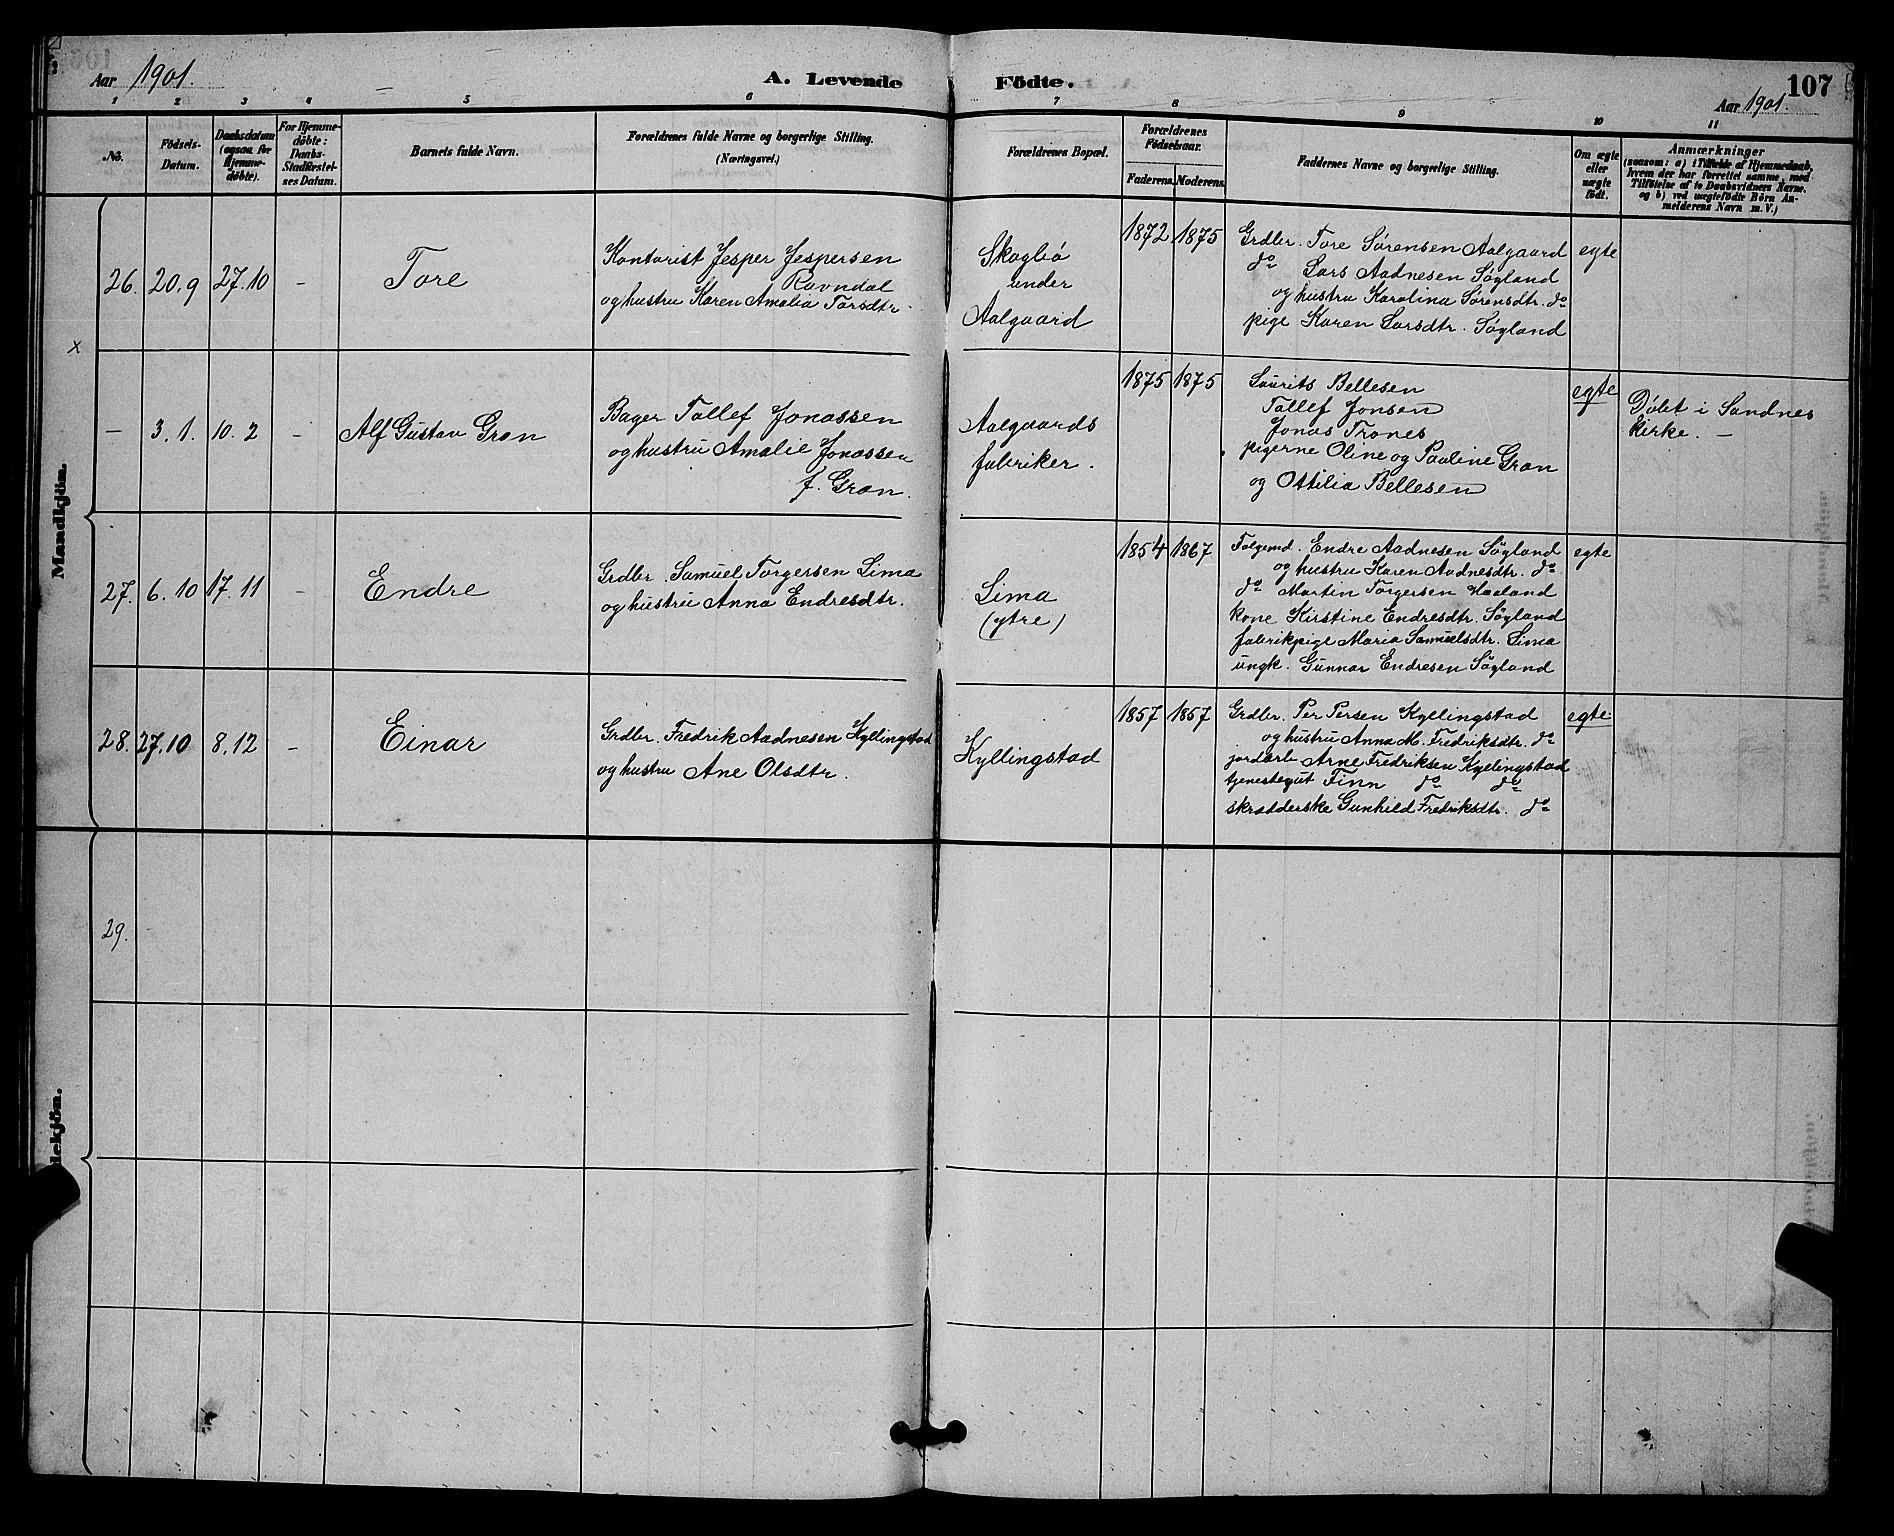 Aar 1901. A. Levende Födte. 107
Aar 1901.
1 2 3 4 5 6 7 8 9 10 11
No.
Födsels-
Datum.
Daabsdatum
(ogsaa for
Hjemme-
döbte).
For Hjemme-
döbte:
Daabs-
Stadfæstel-
ses Datum.
Barnets fulde Navn.
Forældrenes fulde Navne og borgerlige Stilling.
(Næringsvei.)
Forældrenes Bopæl.
Forældrenes
Födselsaar.
Faderens. Moderens.
Faddernes Navne og borgerlige Stilling.
Om ægte
eller
uægte
födt.
Anmærkninger
(saasom: a) i Tilfælde af Hjemmedaab,
hvem der har forrettet samme, med
Tilföielse af to Daabsvidners Navne.
og b) ved uægtefödte Börn An-
melderens Navn m. V.)
Mandkjön.
26. 20.9 27.10 -
Tore
Kontorist Jesper Jespersen
Ravndal
og hustru Karen Amalia Torsdtr.
Skogliø
under
Aalgaard
1872 1875
Grdbr. Tore Sørensen Aalgaard
do Lars Aadnesen Søyland
og hustru Karolina Sørensdtr. do
pige Karen Larsdtr. Søyland
egte
x
- 3.1. 10.2 -
Alf Gustav Gran
Bager Tollef Jonassen
og hustru Amalie Jonassen
f. Gran.
Aalgaards
fabriker.
1875 1875
Laurits Bellesen
Tollef Jonsen
Jonas Trones
pigerne Oline og Pauline Gran
og Ottilia Bellesen
egte
Døbt i Sandnes
kirke. -
27. 6.10 17.11 -
Endre
Grdbr. Samuel Torgersen Lima
og hustru Anna Endresdtr.
Lima
(ytre)
1854 1867
Folgemd. Endre Aadnesen Søyland
og hustru Karen Aadnesdtr. do
do Martin Torgersen Haaland
kone Kirstine Endresdtr. Søyland
fabrikpige Maria Samuelsdtr. Lima
ungk. Gunnar Endresen Søyland
egte
28. 27.10 8.12 -
Einar
Grdbr. Fredrik Aadnesen Kyllingstad
og hustru Ane Olsdtr.
Kyllingstad
1857 1857
Grdbr. Per Persen Kyllingstad
og hustru Anna M. Fredriksdtr. do
jordarb. Arne Fredriksen Kyllingstad
tjenestegut Finn do do
skrædderske Gunhild Fredriksdtr. do
egte
29.
dekjön.